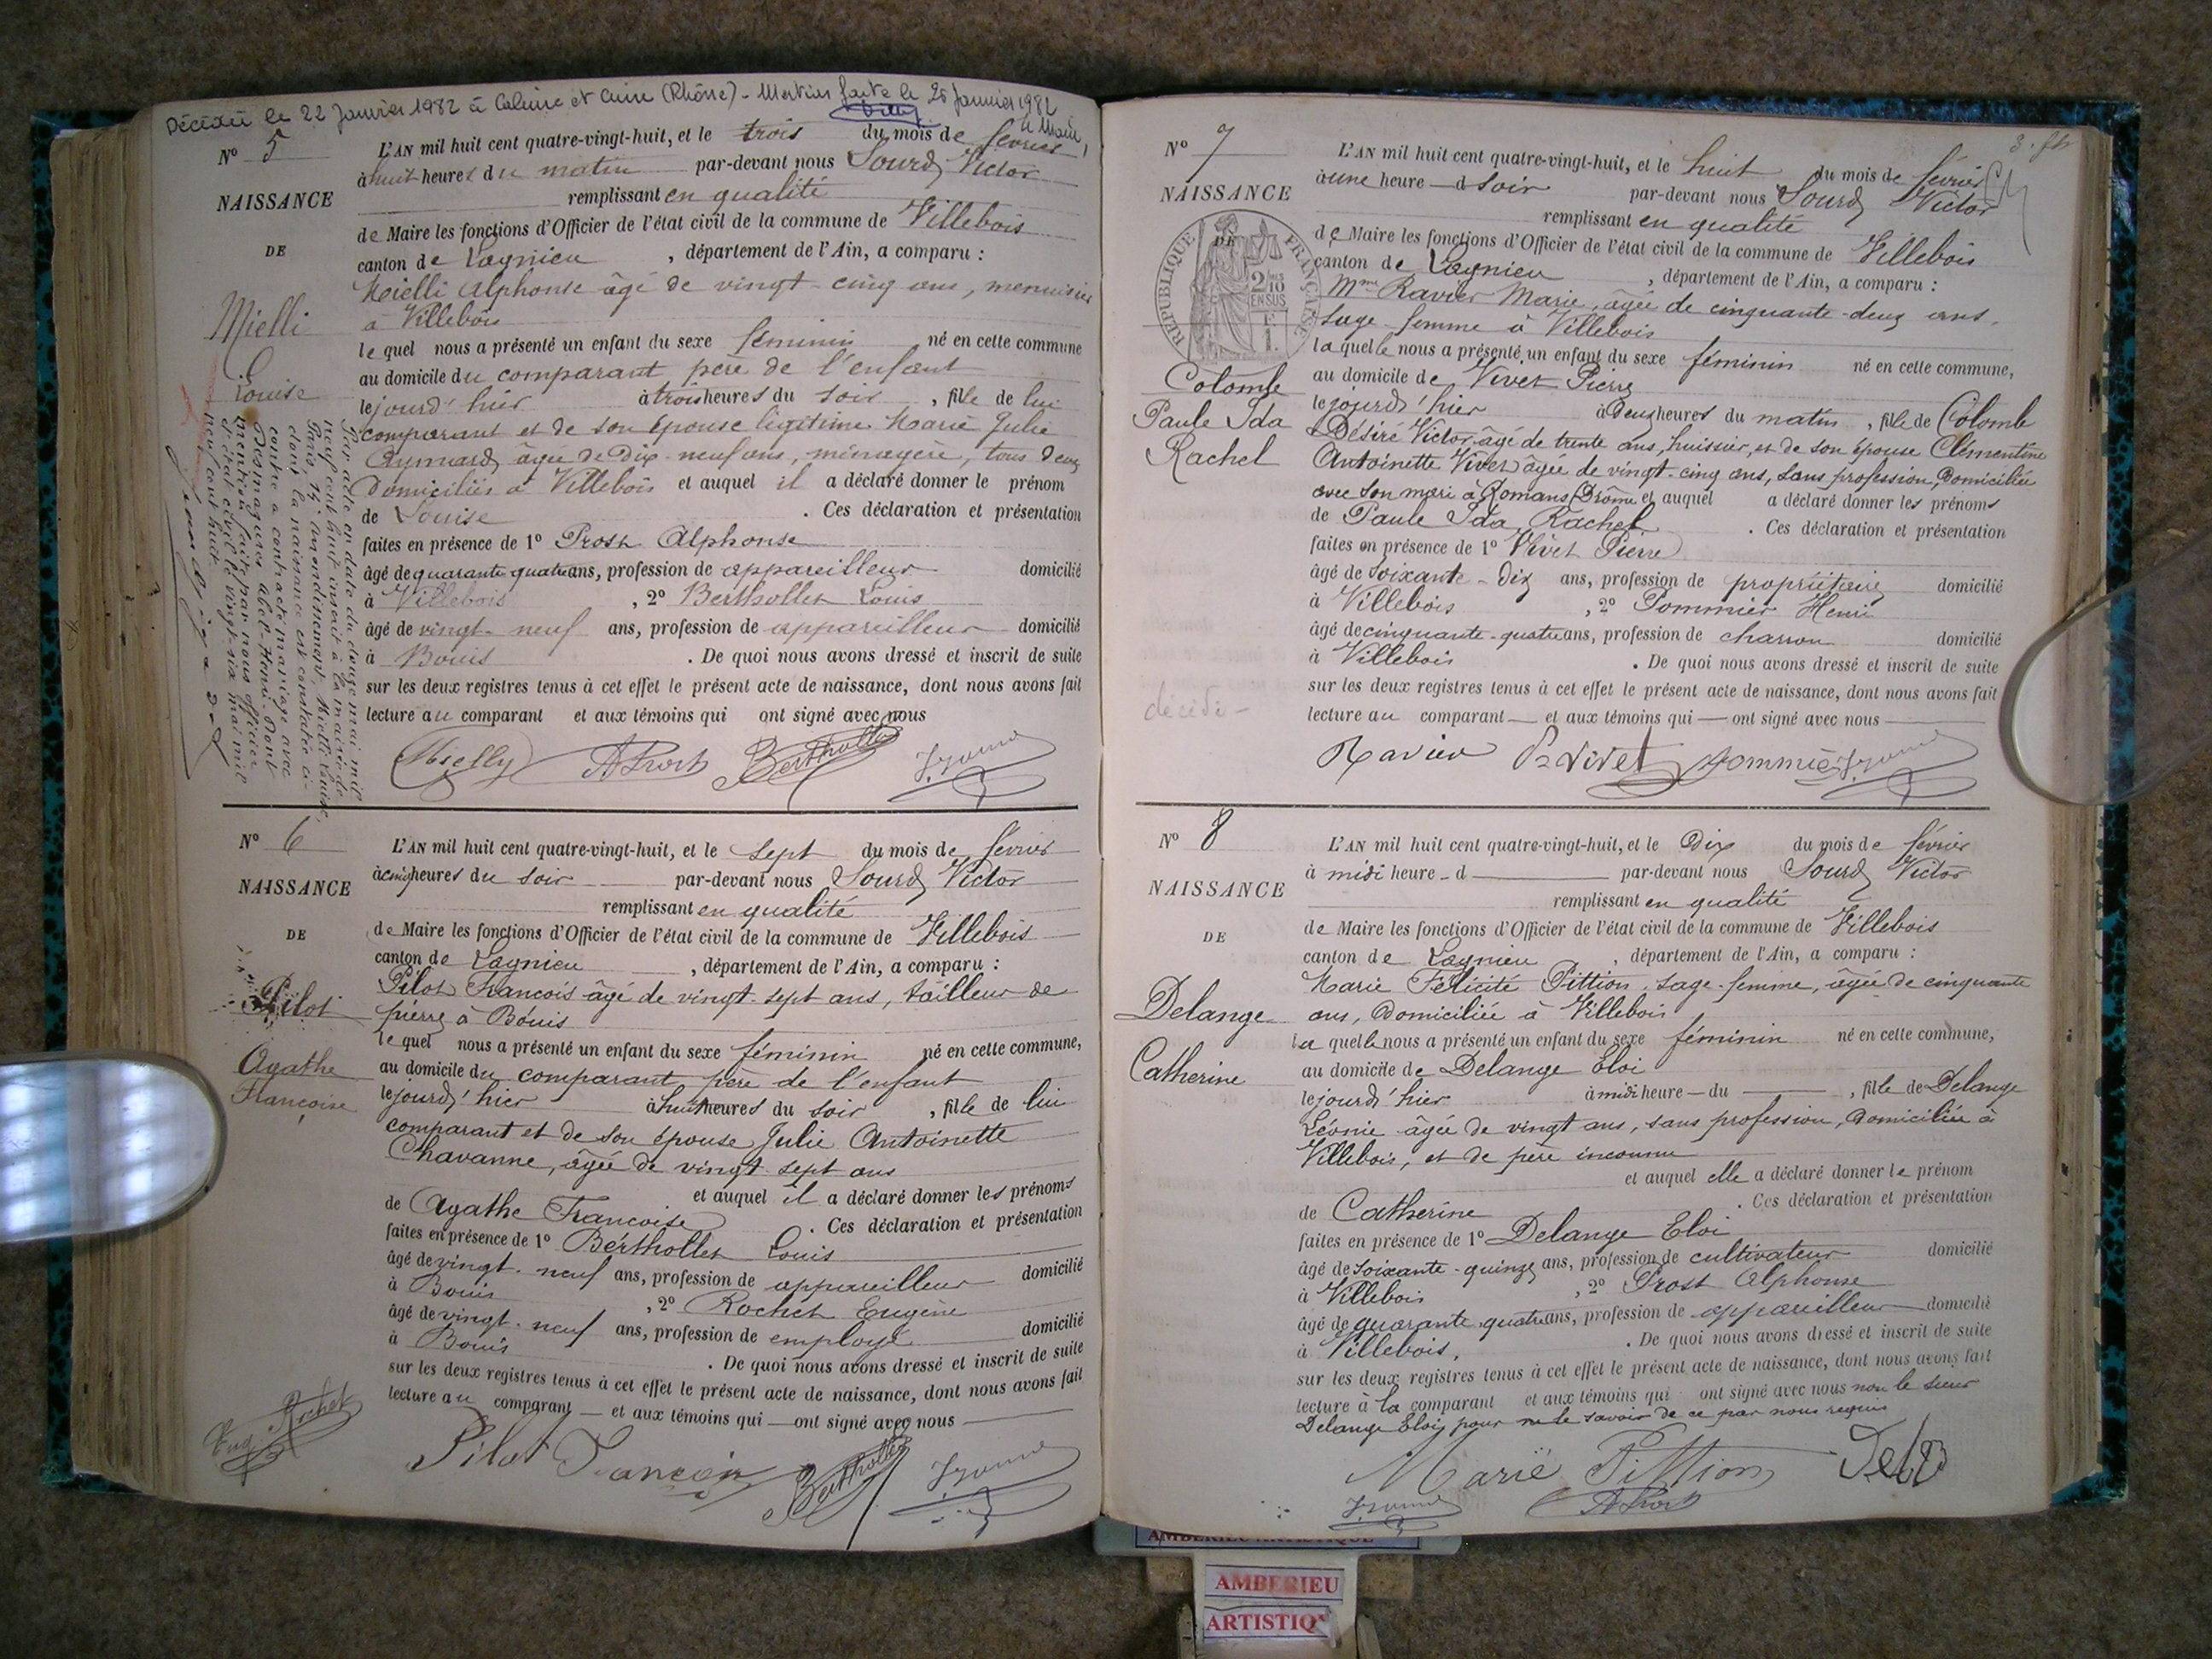 Décédée le 22 Janvier 1982 à Caluire et Cuire (Rhône) - Mention faite le 28 Janvier 1982
le Maire,
N° 5
NAISSANCE
DE
Mielli
Louise
L'AN mil huit cent quatre-vingt-huit, et le trois du mois de février
à huit heures du matin par-devant nous Sourd Victor
remplissant en qualité
de Maire les fonctions d'Officier de l'état civil de la commune de Villebois
canton de Lagnieu, département de l'Ain, a comparu :
Mielli Alphonse âgé de vingt-cinq ans, menuisier
à Villebois
lequel nous a présenté un enfant du sexe féminin né en cette commune
au domicile du comparant père de l'enfant
le jourd'hier à trois heures du soir, fille de lui
comparant et de son épouse légitime Marie Julie
Aymard, âgée de dix-neuf ans, ménagère, tous deux
domiciliés à Villebois et auquel il a déclaré donner le prénom
de Louise. Ces déclaration et présentation
faites en présence de 1° Prost Alphonse
âgé de quarante quatre ans, profession de appareilleur domicilié
à Villebois, 2° Berthollet Louis
âgé de vingt-neuf ans, profession de appareilleur domicilié
à Bouis. De quoi nous avons dressé et inscrit de suite
sur les deux registres tenus à cet effet le présent acte de naissance, dont nous avons fait
lecture au comparant et aux témoins qui ont signé avec nous
Mielly AProst Berthollet
Par acte en date du douze mai mil
neuf cent huit inscrit à la mairie de
Paris 14e arrondissement, Mielli Louise,
dont la naissance est constatée ci-
contre a contracté mariage avec
Desmagures Abel-Henri. Dont
mention faite par nous officier
d'état civil le vingt-six mai mil
neuf cent huit.
N° 6
NAISSANCE
DE
Pilot
Agathe
Françoise
L'AN mil huit cent quatre-vingt-huit, et le sept du mois de février
à cinq heures du soir par-devant nous Sourd Victor
remplissant en qualité
de Maire les fonctions d'Officier de l'état civil de la commune de Villebois
canton de Lagnieu, département de l'Ain, a comparu :
Pilot François âgé de vingt-sept ans, tailleur de
pierre à Bouis
lequel nous a présenté un enfant du sexe féminin né en cette commune,
au domicile du comparant père de l'enfant
le jourd'hier à huit heures du soir, fille de lui
comparant et de son épouse Julie Antoinette
Chavanne, âgée de vingt-sept ans
et auquel il a déclaré donner les prénoms
de Agathe Françoise. Ces déclaration et présentation
faites en présence de 1° Berthollet Louis
âgé de vingt-neuf ans, profession de appareilleur domicilié
à Bouis, 2° Rochet Eugène
âgé de vingt-neuf ans, profession de employé domicilié
à Bouis. De quoi nous avons dressé et inscrit de suite
sur les deux registres tenus à cet effet le présent acte de naissance, dont nous avons fait
lecture au comparant et aux témoins qui ont signé avec nous
Eug. Rochet Pilot François Berthollet
N° 7
NAISSANCE
DE
REPUBLIQUE FRANÇAISE
2/10 EN SUS
Colomb
Paule Ida
Rachel
décédée
L'AN mil huit cent quatre-vingt-huit, et le huit du mois de février
à une heure d soir par-devant nous Sourd Victor
remplissant en qualité
de Maire les fonctions d'Officier de l'état civil de la commune de Villebois
canton de Lagnieu, département de l'Ain, a comparu :
Mme Ravier Marie, âgée de cinquante-deux ans,
sage-femme à Villebois
laquelle nous a présenté un enfant du sexe féminin né en cette commune,
au domicile de Vivet Pierre
le jourd'hier à deux heures du matin, fille de Colomb
Désiré Victor âgé de trente ans, huissier, et de son épouse Clémentine
Antoinette Vivet âgée de vingt-cinq ans, sans profession, domiciliée
avec son mari à Romans Drôme et auquel a déclaré donner les prénoms
de Paule Ida Rachel. Ces déclaration et présentation
faites en présence de 1° Vivet Pierre
âgé de soixante-dix ans, profession de propriétaire domicilié
à Villebois, 2° Pommier Henri
âgé de cinquante-quatre ans, profession de charron domicilié
à Villebois. De quoi nous avons dressé et inscrit de suite
sur les deux registres tenus à cet effet le présent acte de naissance, dont nous avons fait
lecture au comparant et aux témoins qui ont signé avec nous
Ravier Pre Vivet Pommier
N° 8
NAISSANCE
DE
Delange
Catherine
L'AN mil huit cent quatre-vingt-huit, et le dix du mois de février
à midi heure d par-devant nous Sourd Victor
remplissant en qualité
de Maire les fonctions d'Officier de l'état civil de la commune de Villebois
canton de Lagnieu, département de l'Ain, a comparu :
Marie Félicité Pittion, sage-femme, âgée de cinquante
ans, domiciliée à Villebois
laquelle nous a présenté un enfant du sexe féminin né en cette commune,
au domicile de Delange Eloi
le jourd'hier à midi heure du, fille de Delange
Léonie âgée de vingt ans, sans profession, domiciliée à
Villebois, et de père inconnu
et auquel elle a déclaré donner le prénom
de Catherine. Ces déclaration et présentation
faites en présence de 1° Delange Eloi
âgé de soixante-quinze ans, profession de cultivateur domicilié
à Villebois, 2° Prost Alphonse
âgé de quarante-quatre ans, profession de appareilleur domicilié
à Villebois. De quoi nous avons dressé et inscrit de suite
sur les deux registres tenus à cet effet le présent acte de naissance, dont nous avons fait
lecture à la comparant et aux témoins qui ont signé avec nous non le sieur
Delange Eloi, pour ne le savoir de ce par nous requis
Marie Pittion
AProst
AMBERIEU ARTISTIQUE
AMBERIEU
ARTISTIQ